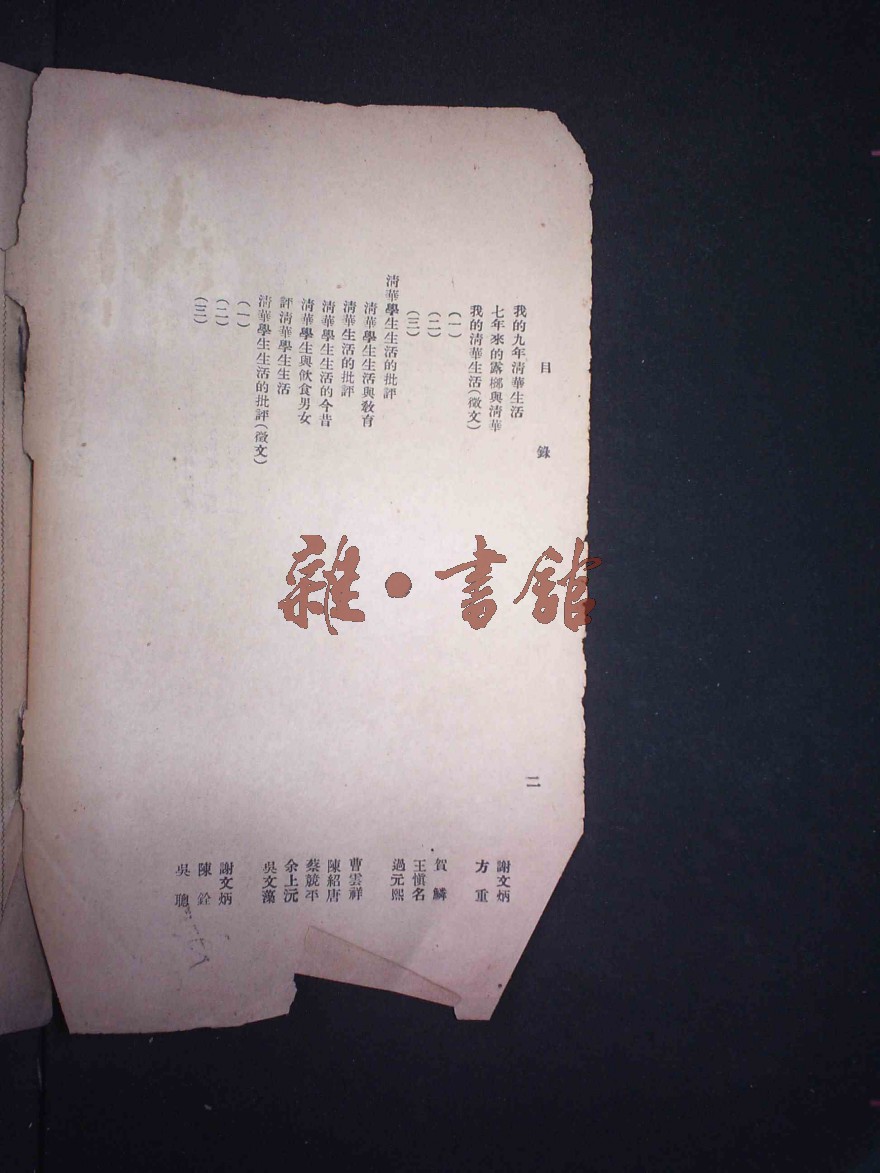 目錄 二
我的九年清華生活 謝文炳
七年來的露榔與清華 方重
我的清華生活(徵文)
(一) 賀麟
(二) 王慎名
(三) 過元熙
清華學生生活的批評
清華學生生活與教育 曹雲祥
清華生活的批評 陳紹唐
清華學生生活的今昔 蔡競平
清華學生與飲食男女 余上沅
評清華學生生活 吳文藻
清華學生生活的批評(徵文)
(一) 謝文炳
(二) 陳銓
(三) 吳聰
雜·書館